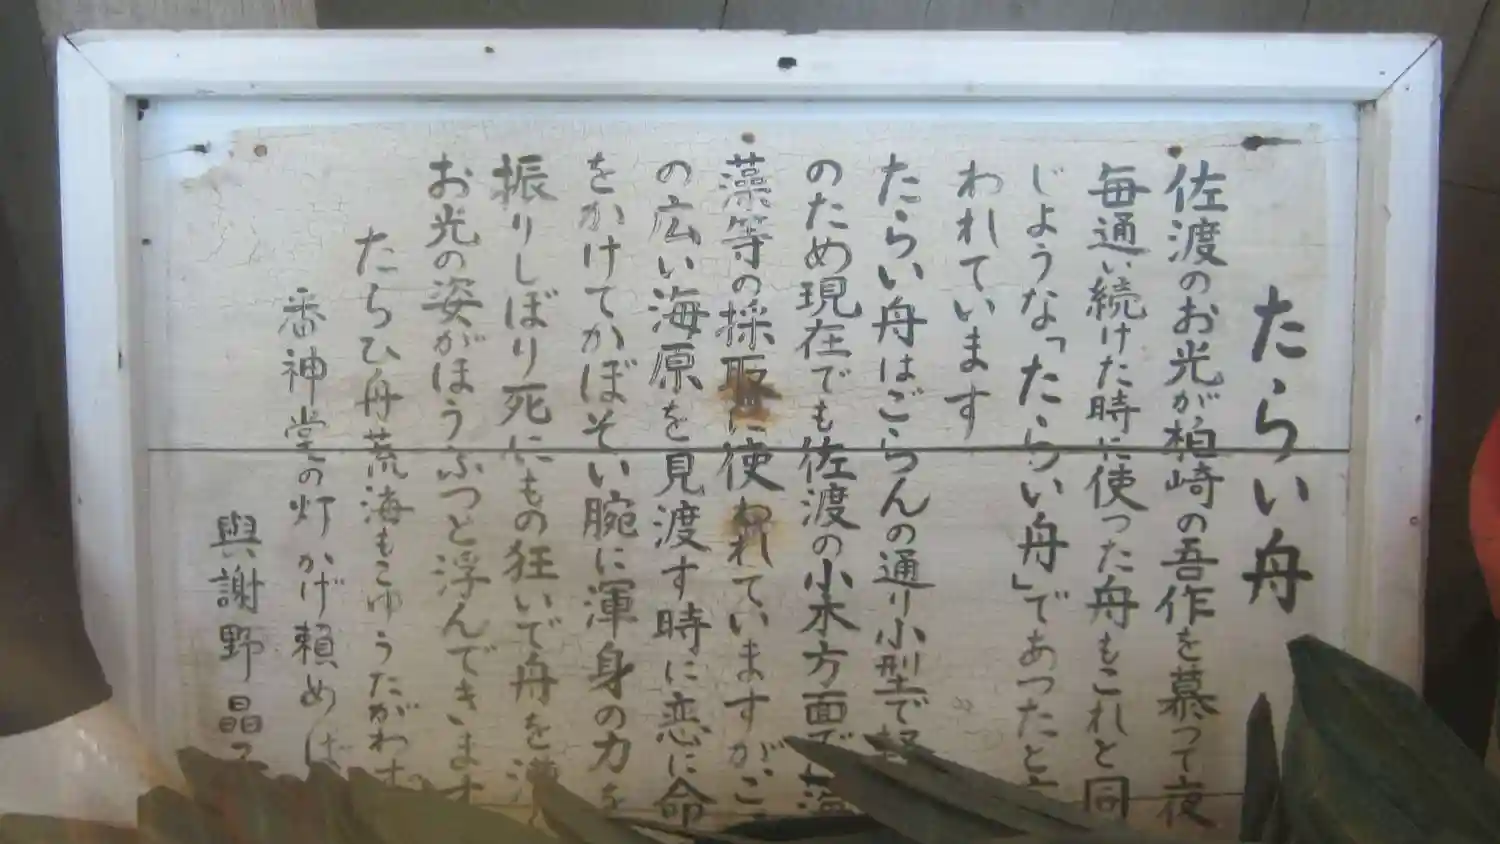 たらい舟
佐渡のお光が柏崎の吾作を慕って夜
毎通い続けた時に使った舟もこれと同
じような「たらい舟」であったと
われています
たらい舟はごらんの通り小型で軽
のため現在でも佐渡の小木方面で海
藻等の採取に使われていますがこ
の広い海原を見渡す時に恋に命
をかけてかぼそい腕に渾身の力を
振りしぼり死にもの狂いで舟を漕
お光の姿がほうふつと浮んできます
たらひ舟荒海もこゆうたがわず
番神堂の灯かげ頼めば
與謝野晶子